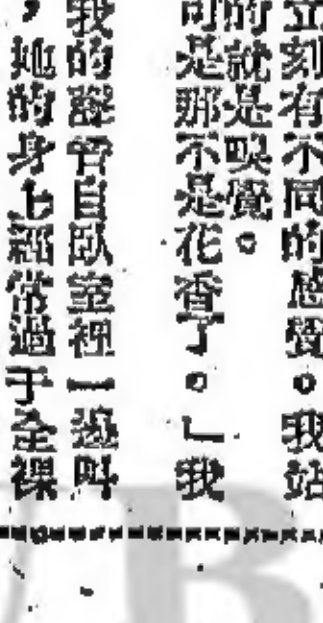 立刻有不同的感覺。我站
的就是嗅覺。
可是那不是花香了。」我
我的聲音自臥室裡一邊叫
,她的身上經常過于全裸